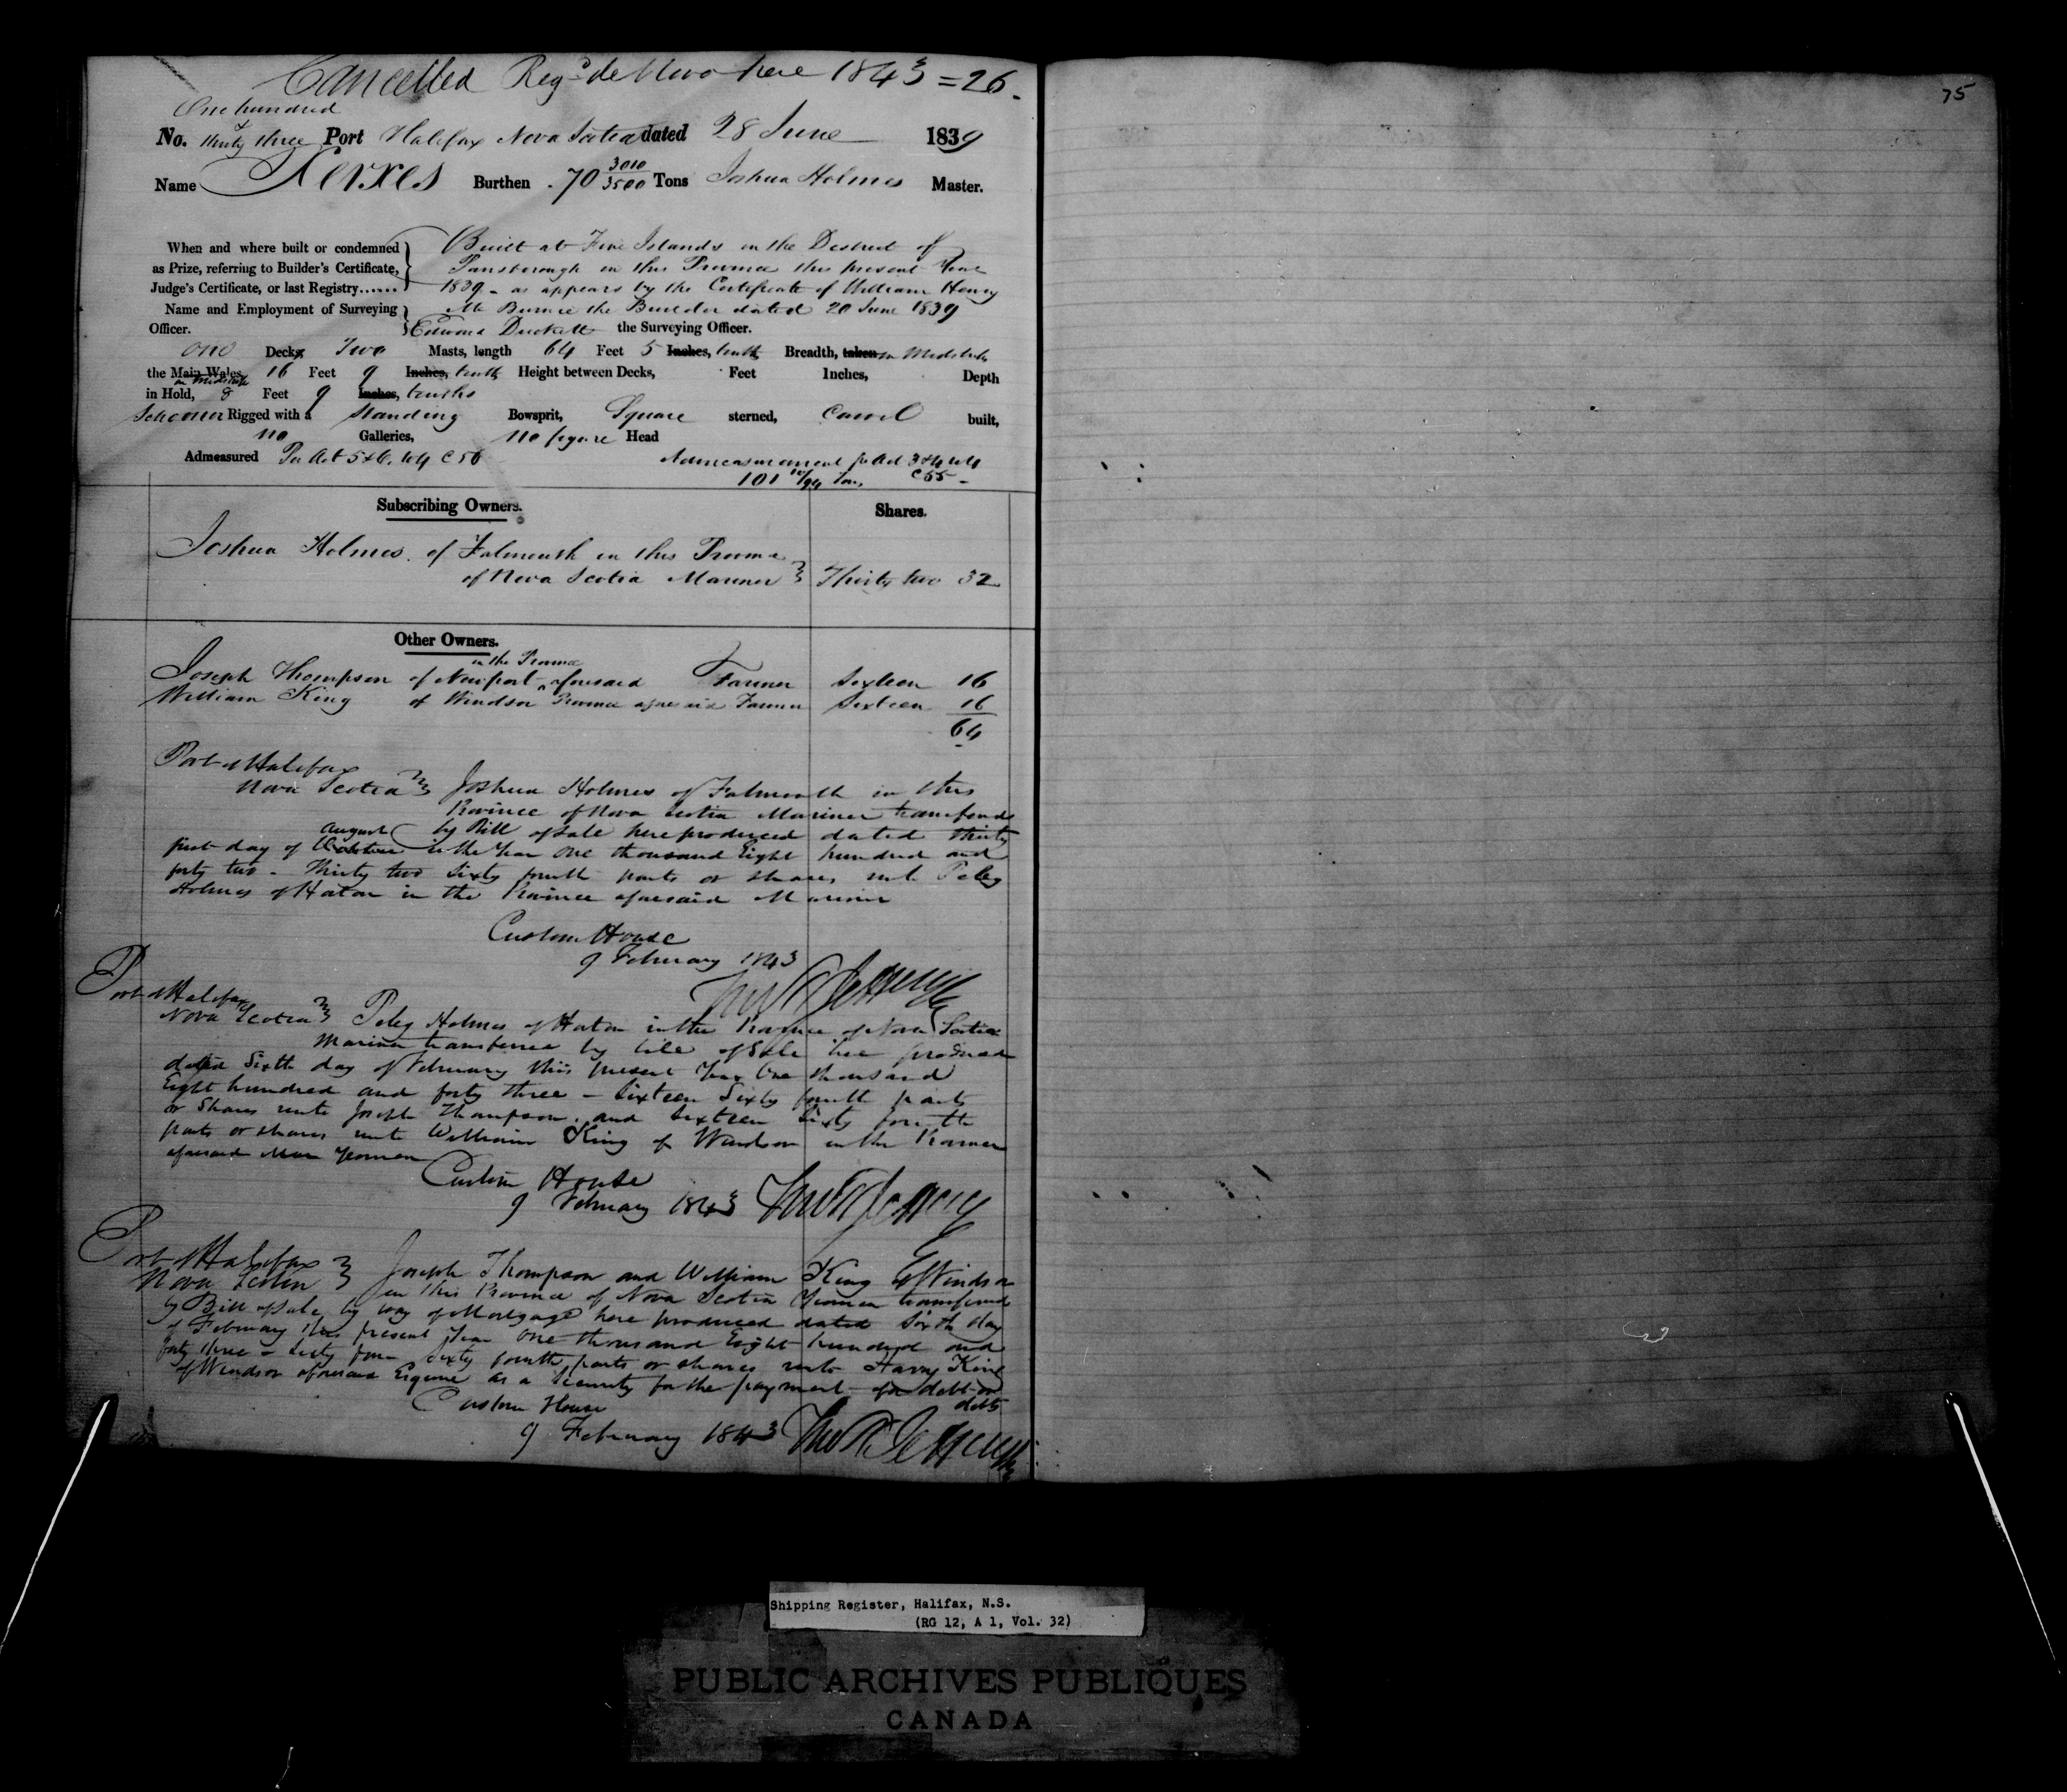 Cancelled Reg.d de Novo here 1843 = 26.
One hundred
&
No. thirty three Port Halifax Nova Scotia dated 28 June 1839
Name Xerxes Burthen 70 3010/3500 Tons Joshua Holmes Master.
When and where built or condemned Built at Five Islands in the District of
as Prize, referring to Builder's Certificate, Parrsborough in this Province this present Year
Judge's Certificate, or last Registry...... 1839 - as appears by the Certificate of William Henry
Name and Employment of Surveying Mc Burnie the Builder dated 20 June 1839
Officer. Edward Duckett the Surveying Officer.
One Decks Two Masts, length 64 Feet 5 Inches, tenths Breadth, taken in Midships
the Main Wales, 16 Feet 9 Inches, tenths Height between Decks, Feet Inches, Depth
in Midships
in Hold, 8 Feet 9 Inches, tenths
Schooner Rigged with a Standing Bowsprit, Square sterned, Carvel built,
no Galleries, no figure Head
Admeasured Per Act 5 & 6. W4 C 56 Admeasurement pr Act 3 & 4 W4
101 /94 Tons C 55 -
Subscribing Owners. Shares.
Joshua Holmes of Falmouth in this Province
of Nova Scotia Mariner Thirty two 32
Other Owners.
in the Province
Joseph Thompson of Newport aforesaid Farmer Sixteen 16
William King of Windsor Province aforesaid Farmer Sixteen 16
64
Port of Halifax
Nova Scotia Joshua Holmes of Falmouth in this
Province of Nova Scotia Mariner transferred
august by Bill of Sale here produced dated thirty
first day of October in the Year One thousand Eight hundred and
forty two - Thirty two Sixty fourth parts or shares unto Peleg
Holmes of in the Province aforesaid Mariner
Custom House
9 February 1843
Thos N Jeffery
Port of Halifax
Nova Scotia Peleg Holmes of in the Province of Nova Scotia
Mariner transferred by bill of Sale here produced
dated Sixth day of February this present Year One thousand
Eight hundred and forty three - Sixteen Sixty fourth parts
or Shares unto Joseph Thompson, and Sixteen Sixty fourth
parts or shares unto William King of Windsor in the Province
aforesaid Yeomen
Custom House
9 February 1843 Thos N Jeffery
Port of Halifax
Nova Scotia Joseph Thompson and William King of Windsor
in this Province of Nova Scotia Yeomen transferred
by Bill of Sale by way of Mortgage here produced dated Sixth day
of February this present Year One thousand Eight hundred and
forty three - Sixty four Sixty fourth parts or shares unto Harry King
of Windsor aforesaid Esquire as a Security for the payment of a debt or
debts
Custom House
9 February 1843 Thos N Jeffery
75
Shipping Register, Halifax, N.S.
(RG 12, A 1, Vol. 32)
PUBLIC ARCHIVES PUBLIQUES
CANADA